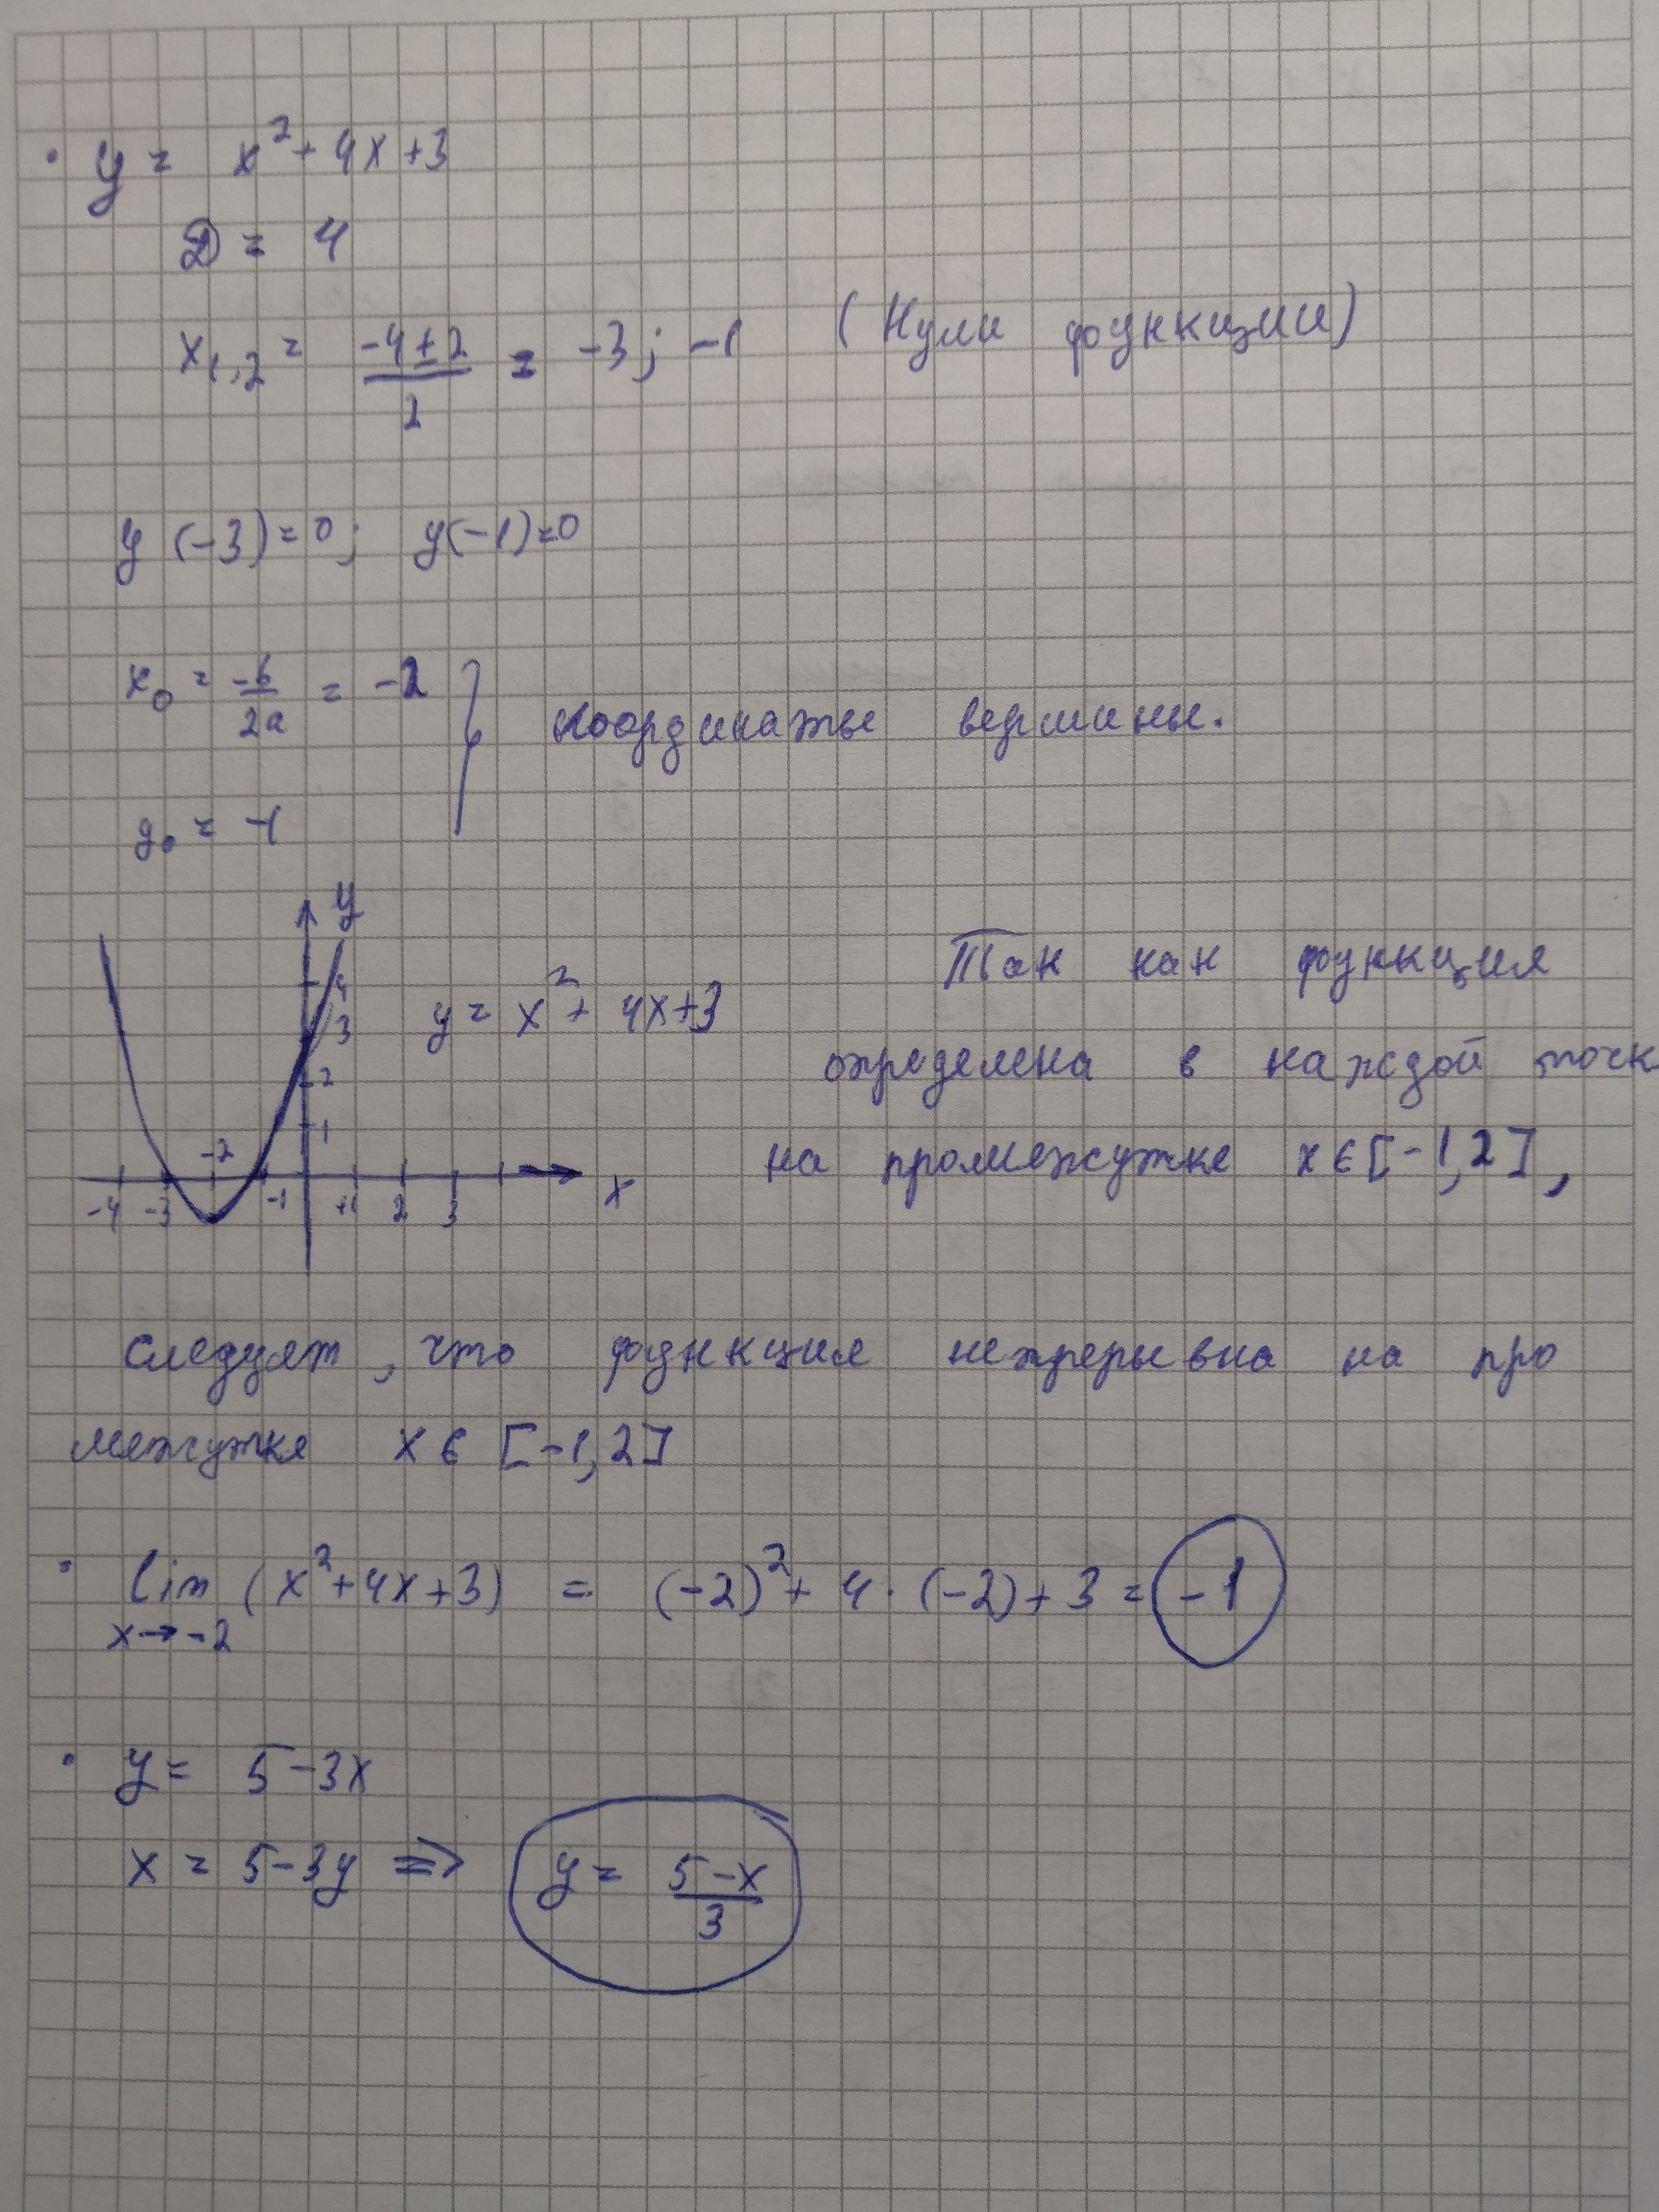 • y = x² + 4x + 3
D = 4
x₁,₂ = (-4 ± 2)/2 = -3; -1 (Нули функции)
y (-3) = 0; y(-1) = 0
x₀ = -b/2a = -2
координаты вершины.
y₀ = -1
y
4
3
2
1
-2
-4 -3 -1 +1 2 3 x
y = x² + 4x + 3
Так как функция
определена в каждой точк
на промежутке x ∈ [-1, 2],
следует, что функция непрерывна на про
межутке x ∈ [-1, 2]
• lim (x² + 4x + 3) = (-2)² + 4 · (-2) + 3 = -1
x → -2
• y = 5 - 3x
x = 5 - 3y ⇒ y = (5 - x)/3